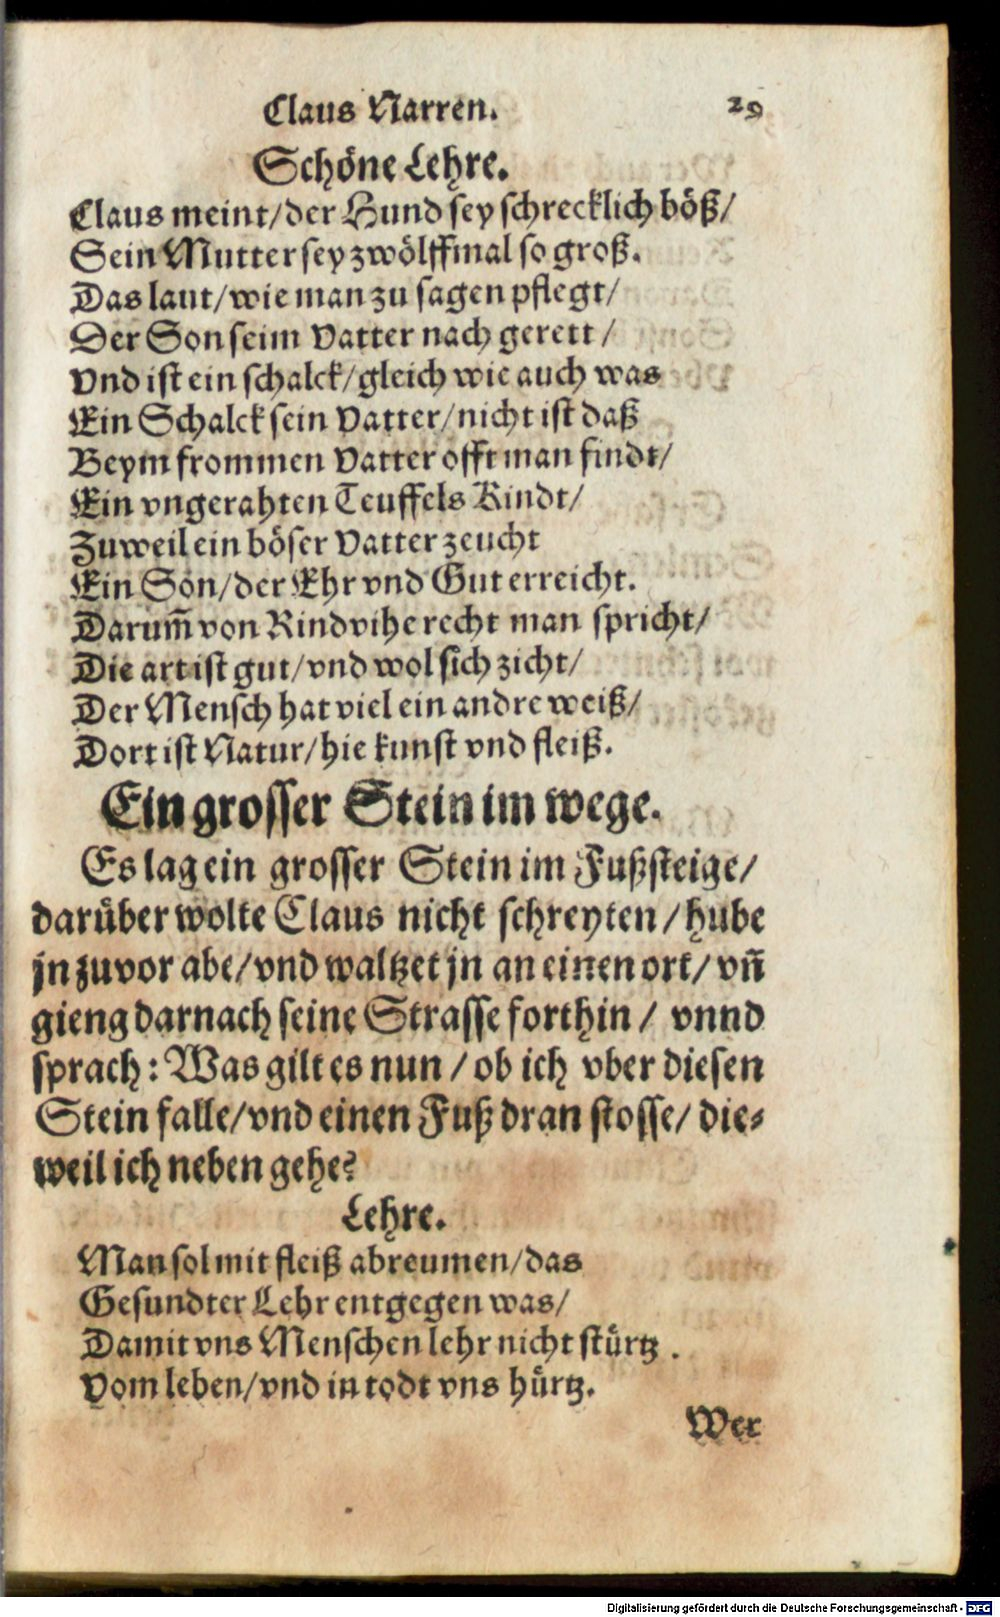 Claus Narren. 29
Schöne Lehre.
Claus meint/der Hund sey schrecklich böß/
Sein Mutter sey zwölffmal so groß.
Das laut/wie man zu sagen pflegt/
Der Son seim Vatter nach gerett/
Vnd ist ein schalck/gleich wie auch was
Ein Schalck sein Vatter/nicht ist daß
Beym frommen Vatter offt man findt/
Ein vngerahten Teuffels Kindt/
Zuweil ein böser Vatter zeucht
Ein Son/der Ehr vnd Gut erreicht.
Darum̃ von Rindvihe recht man spricht/
Die art ist gut/vnd wol sich zicht/
Der Mensch hat viel ein andre weiß/
Dort ist Natur/hie kunst vnd fleiß.
Ein grosser Stein im wege.
Es lag ein grosser Stein im Fußsteige/
darüber wolte Claus nicht schreyten/hube
jn zuvor abe/vnd waltzet jn an einen ort/vñ
gieng darnach seine Strasse forthin/ vnnd
sprach: Was gilt es nun/ob ich vber diesen
Stein falle/vnd einen Fuß dran stosse/ die⸗
weil ich neben gehe?
Lehre.
Man sol mit fleiß abreumen/das
Gesundter Lehr entgegen was/
Damit vns Menschen lehr nicht stürtz.
Vom leben/vnd in todt vns hürtz.
Wer
Digitalisierung gefördert durch die Deutsche Forschungsgemeinschaft - DFG